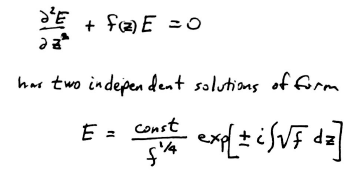 ∂²E/∂z² + f(z) E = 0
has two independent solutions of form
E = const/f^{1/4} exp[± i∫√f dz]